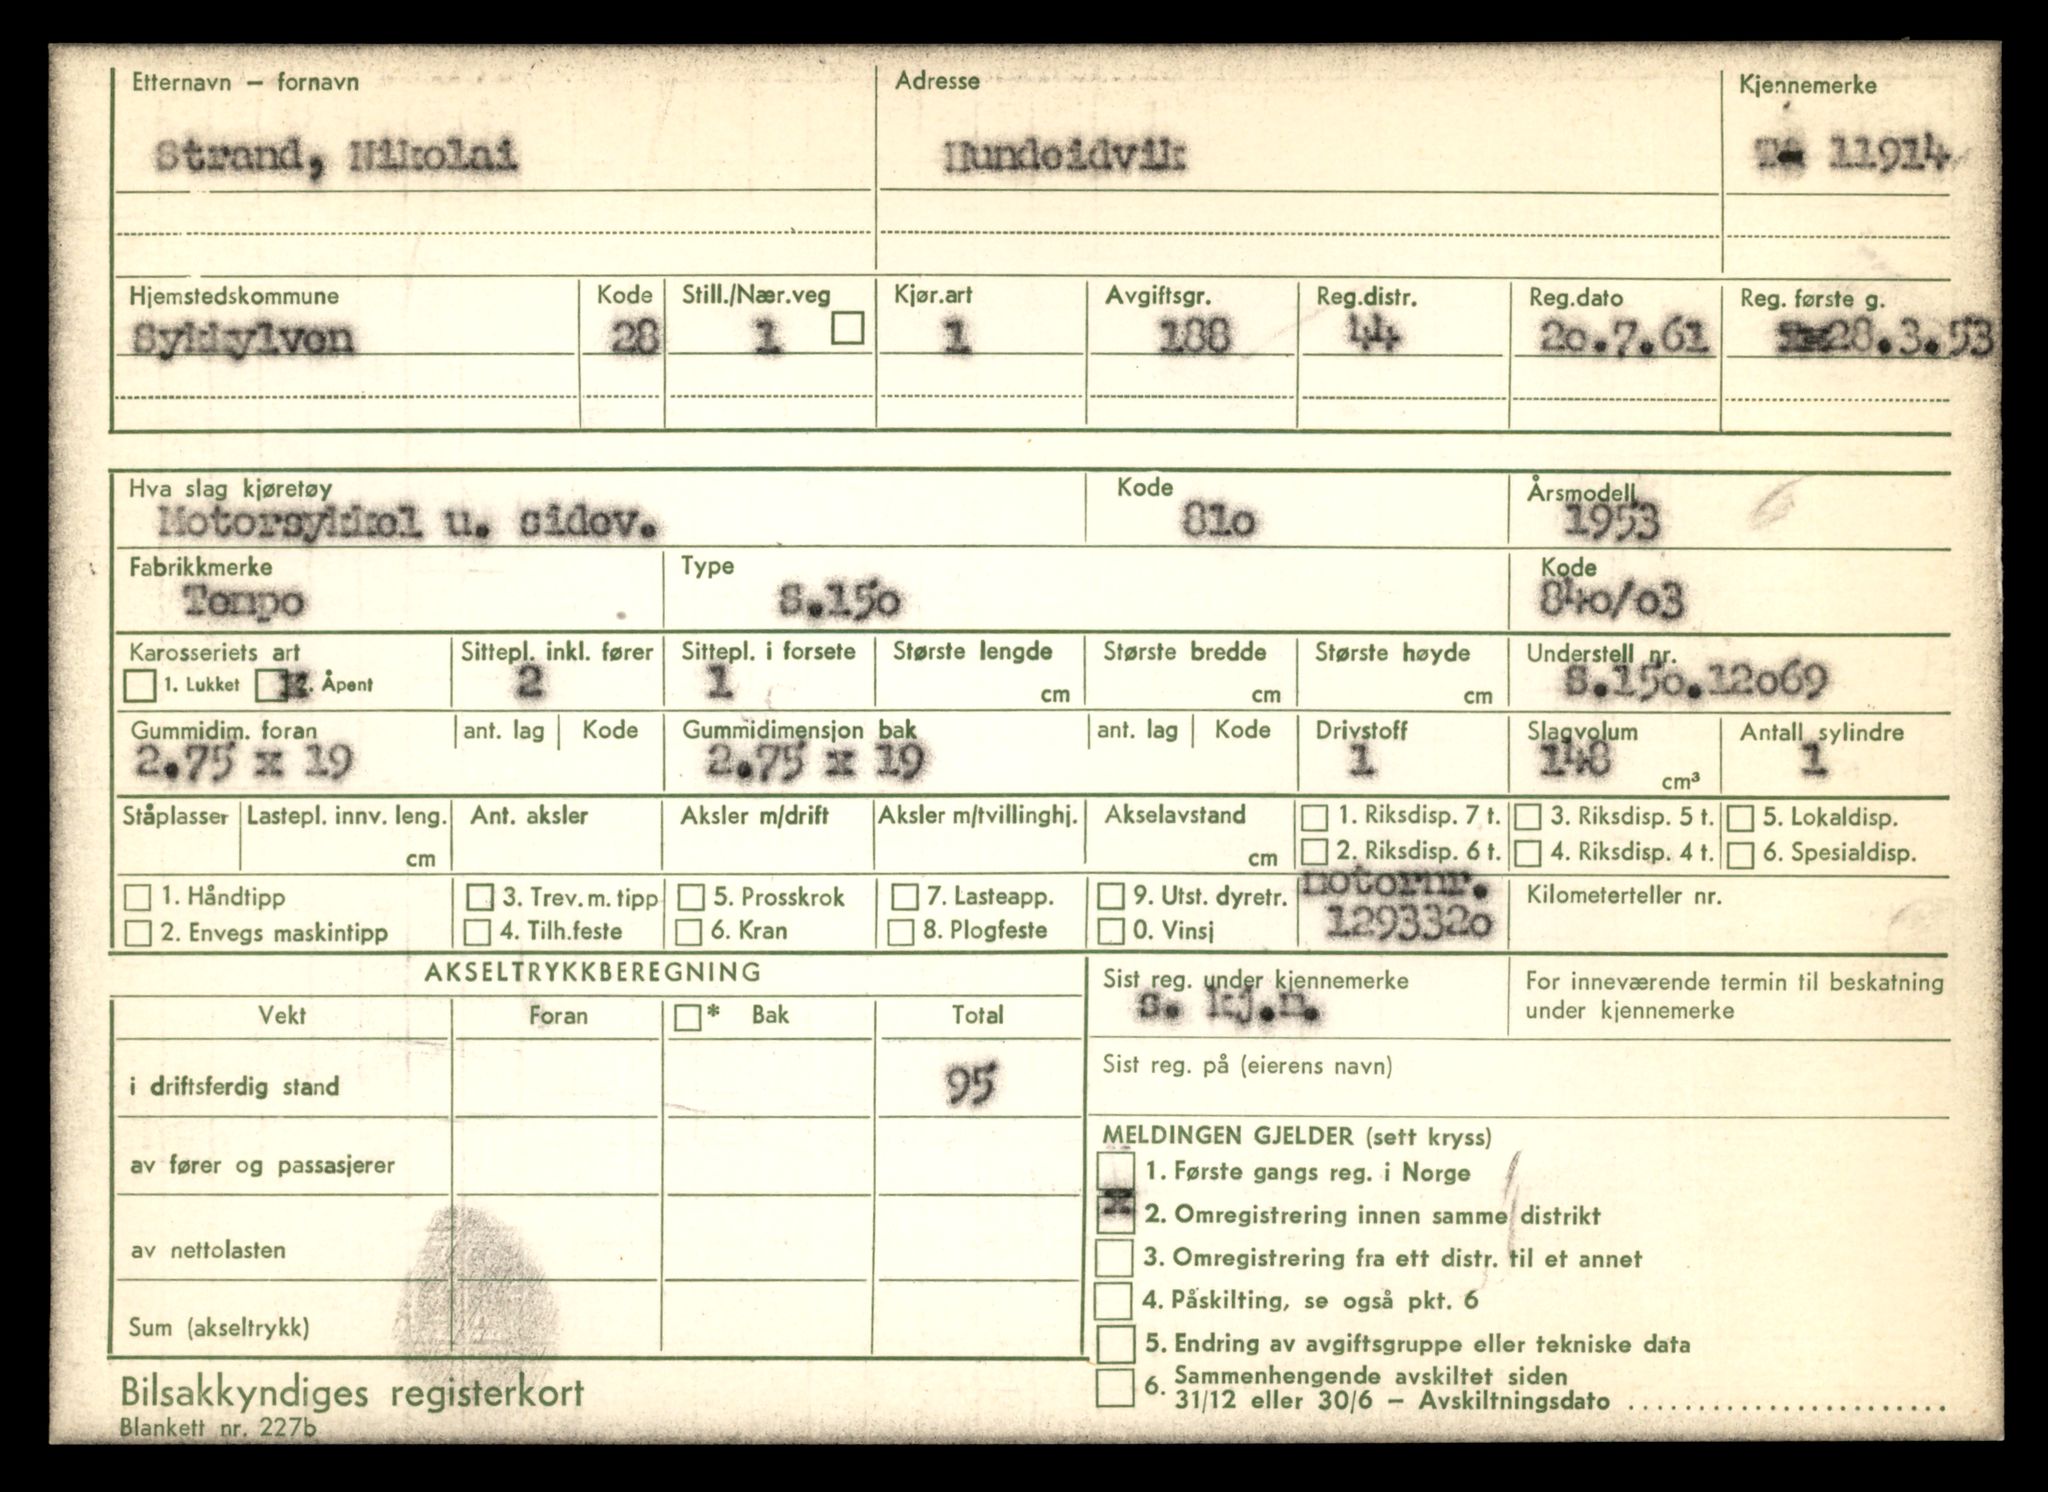 Etternavn – fornavn Adresse Kjennemerke
Strand, Nikolai Hundeidvik 11914
Hjemstedskommune Kode Still./Nær.veg Kjør.art Avgiftsgr. Reg.distr. Reg.dato Reg. første g.
Sykkylven 28 1 1 188 44 2o.7.61 28.3.53
Hva slag kjøretøy Kode Årsmodell
Motorsykkel u. sidev. 81o 1953
Fabrikkmerke Type Kode
Tempo S.15o 84o/o3
Karosseriets art Sittepl. inkl. fører Sittepl. i forsete Største lengde Største bredde Største høyde Understell nr.
1. Lukket x 2. Åpent 2 1 cm cm cm S.15o.12o69
Gummidim. foran ant. lag Kode Gummidimensjon bak ant. lag Kode Drivstoff Slagvolum Antall sylindre
2.75 x 19 2.75 x 19 1 148 cm³ 1
Ståplasser Lastepl. innv. leng. Ant. aksler Aksler m/drift Aksler m/tvillinghj. Akselavstand 1. Riksdisp. 7 t. 3. Riksdisp. 5 t. 5. Lokaldisp.
cm cm 2. Riksdisp. 6 t. 4. Riksdisp. 4 t. 6. Spesialdisp.
1. Håndtipp 3. Trev. m. tipp 5. Prosskrok 7. Lasteapp. 9. Utst. dyretr. motornr. Kilometerteller nr.
2. Envegs maskintipp 4. Tilh.feste 6. Kran 8. Plogfeste 0. Vinsj 129332o
AKSELTRYKKBEREGNING
Vekt Foran * Bak Total
i driftsferdig stand 95
av fører og passasjerer
av nettolasten
Sum (akseltrykk)
Bilsakkyndiges registerkort
Blankett nr. 227b
Sist reg. under kjennemerke For inneværende termin til beskatning
s. kj.n. under kjennemerke
Sist reg. på (eierens navn)
MELDINGEN GJELDER (sett kryss)
1. Første gangs reg. i Norge
x 2. Omregistrering innen samme distrikt
3. Omregistrering fra ett distr. til et annet
4. Påskilting, se også pkt. 6
5. Endring av avgiftsgruppe eller tekniske data
6. Sammenhengende avskiltet siden
31/12 eller 30/6 – Avskiltningsdato ......................